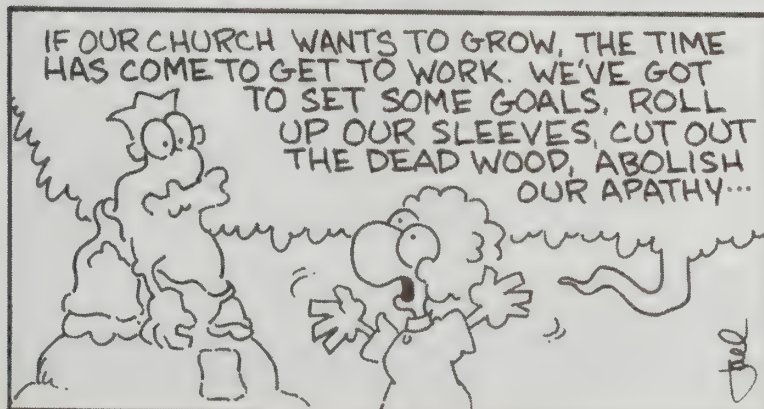 IF OUR CHURCH WANTS TO GROW, THE TIME
HAS COME TO GET TO WORK. WE'VE GOT
TO SET SOME GOALS, ROLL
UP OUR SLEEVES, CUT OUT
THE DEAD WOOD, ABOLISH
OUR APATHY...
Joel